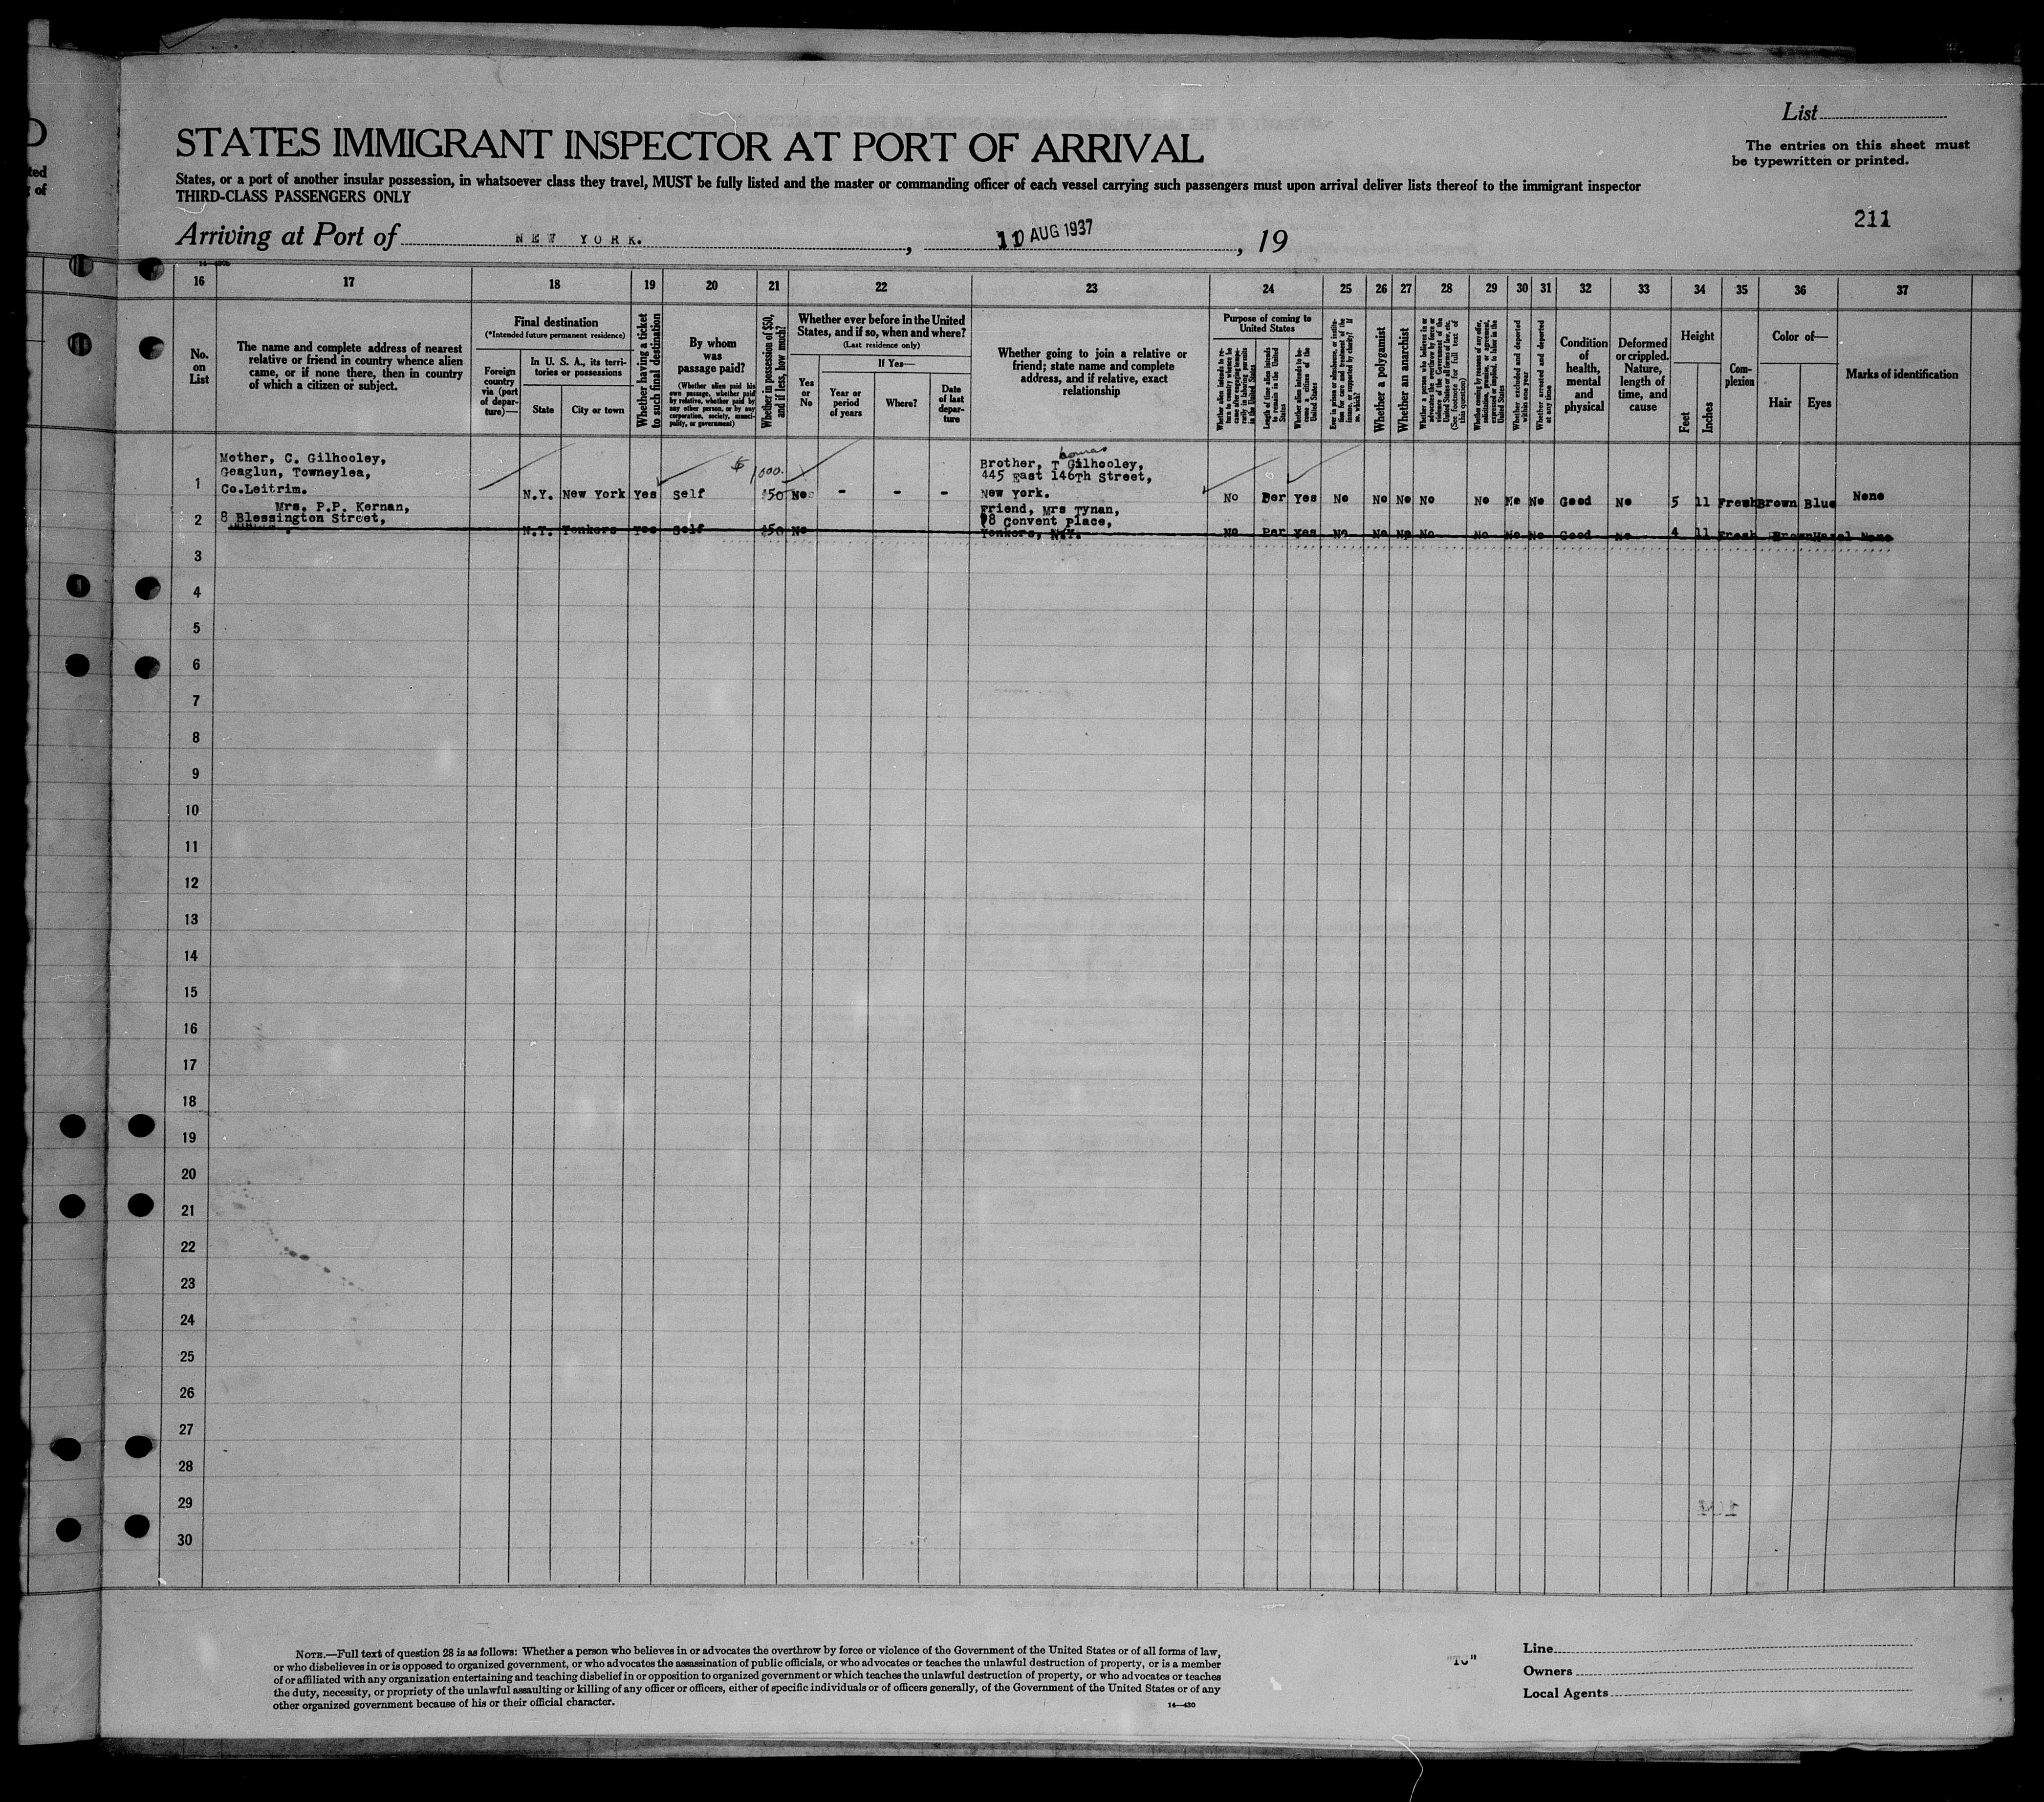 D
ted
of
List
STATES IMMIGRANT INSPECTOR AT PORT OF ARRIVAL
The entries on this sheet must
be typewritten or printed.
States, or a port of another insular possession, in whatsoever class they travel, MUST be fully listed and the master or commanding officer of each vessel carrying such passengers must upon arrival deliver lists thereof to the immigrant inspector
THIRD-CLASS PASSENGERS ONLY
211
Arriving at Port of NEW YORK. , 10 AUG 1937 , 19
16 17 18 19 20 21 22 23 24 25 26 27 28 29 30 31 32 33 34 35 36 37
No.
on
List
The name and complete address of nearest
relative or friend in country whence alien
came, or if none there, then in country
of which a citizen or subject.
Final destination
(*Intended future permanent residence)
Foreign
country
via (port
of depar-
ture)—
In U. S. A., its terri-
tories or possessions
State
City or town
Whether having a ticket
to such final destination
By whom
was
passage paid?
(Whether alien paid his
own passage, whether paid
by relative, whether paid by
any other person, or by any
corporation, society, munici-
pality, or government)
Whether in possession of $50,
and if less, how much?
Whether ever before in the United
States, and if so, when and where?
(Last residence only)
Yes
or
No
If Yes—
Year or
period
of years
Where?
Date
of last
depar-
ture
Whether going to join a relative or
friend; state name and complete
address, and if relative, exact
relationship
Purpose of coming to
United States
Whether alien intends to re-
turn to country whence he
came after engaging tempo-
rarily in laboring pursuits
in the United States
Length of time alien intends
to remain in the United
States
Whether alien intends to be-
come a citizen of the
United States
Ever in prison or almshouse, or institu-
tion for care and treatment of the
insane, or supported by charity? If
so, which?
Whether a polygamist
Whether an anarchist
Whether a person who believes in or
advocates the overthrow by force or
violence of the Government of the
United States or all forms of law, etc.
(See footnote for full text of
this question)
Whether coming by reasons of any offer,
solicitation, promise, or agreement,
expressed or implied, to labor in the
United States
Whether excluded and deported
within one year
Whether arrested and deported
at any time
Condition
of
health,
mental
and
physical
Deformed
or crippled.
Nature,
length of
time, and
cause
Height
Feet
Inches
Com-
plexion
Color of—
Hair
Eyes
Marks of identification
Mother, C. Gilhooley,
Geaglun, Towneylea,
1 Co.Leitrim. N.Y. New York Yes Self $50 No - - -
$1000.
homas
Brother, T Gilhooley,
445 East 146Th Street,
New York.
No Per Yes No No No No No No No Good No 5 11 Fresh Brown Blue None
Mrs. P.P. Kernan,
2 8 Blessington Street,
N.Y. Yonkers Yes Self $50 No
Friend, Mrs Tynan,
98 Convent Place,
Yonkers, N.Y.
No Per Yes No No No No No No No Good No 4 11 Fresh Brown Hazel None
3
4
5
6
7
8
9
10
11
12
13
14
15
16
17
18
19
20
21
22
23
24
25
26
27
28
29
30
NOTE.—Full text of question 28 is as follows: Whether a person who believes in or advocates the overthrow by force or violence of the Government of the United States or of all forms of law,
or who disbelieves in or is opposed to organized government, or who advocates the assassination of public officials, or who advocates or teaches the unlawful destruction of property, or is a member
of or affiliated with any organization entertaining and teaching disbelief in or opposition to organized government or which teaches the unlawful destruction of property, or who advocates or teaches
the duty, necessity, or propriety of the unlawful assaulting or killing of any officer or officers, either of specific individuals or of officers generally, of the Government of the United States or of any
other organized government because of his or their official character.
14—430
"TC"
Line
Owners
Local Agents